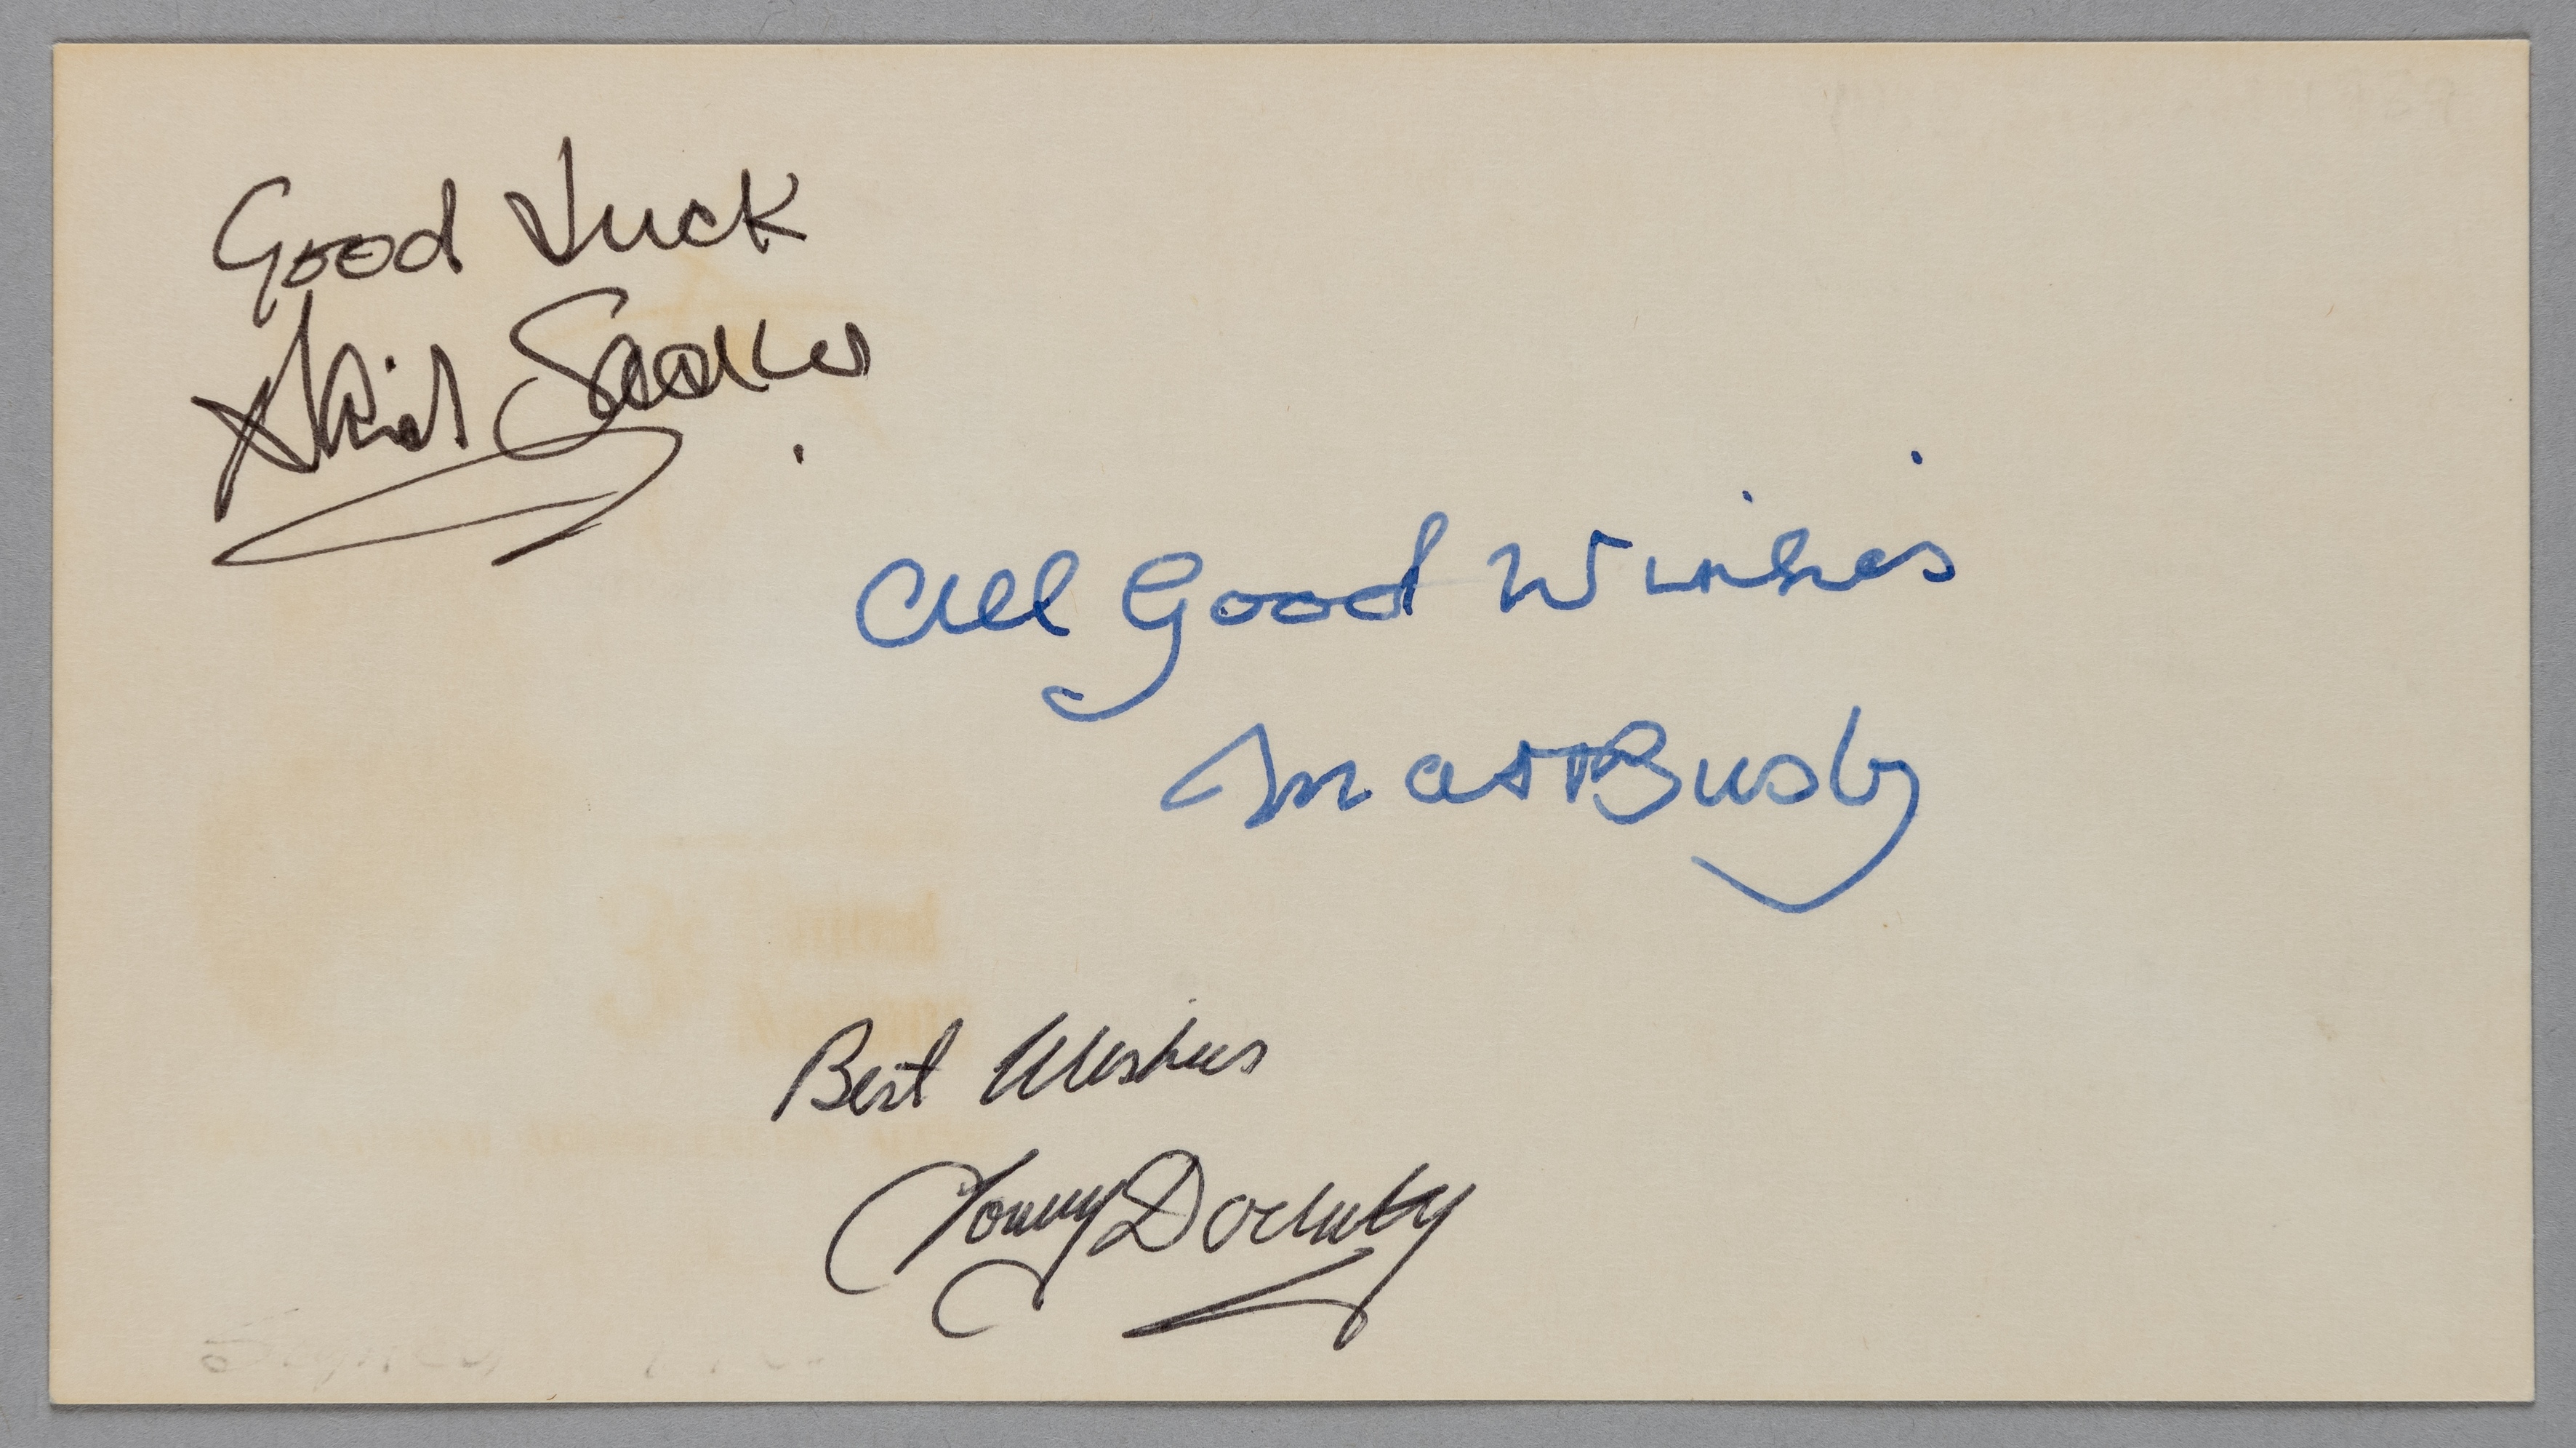 Good Luck
David Sadler
All Good Wishes
Matt Busby
Best Wishes
Tommy Docherty